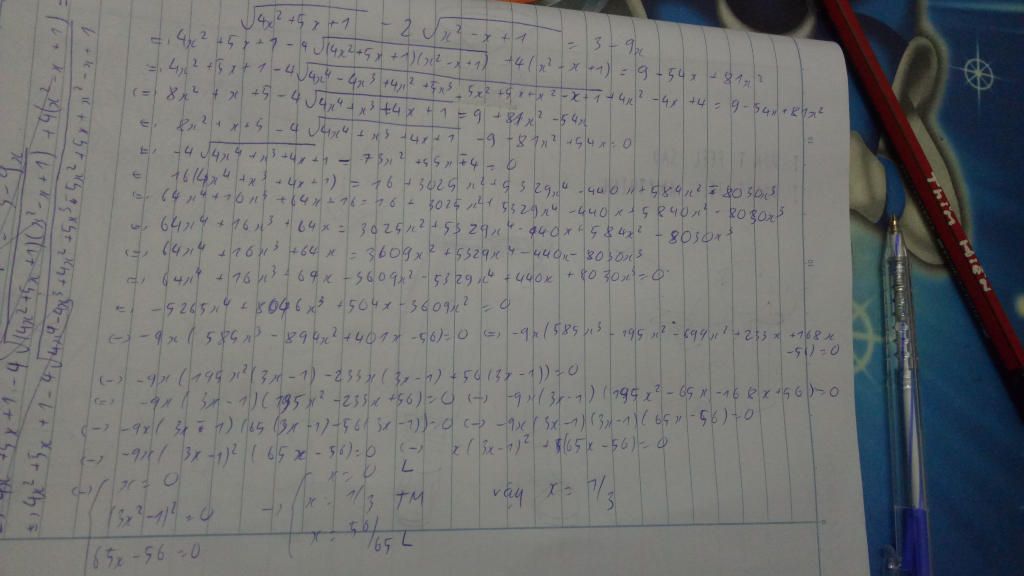 √(4x²+5x+1) - 2√(x²-x+1) = 3-9x
⇔ 4x²+5x+1-4√((4x²+5x+1)(x²-x+1)) +4(x²-x+1) = 9-54x+81x²
⇔ 4x²+5x+1-4√(4x⁴-4x³+4x²+5x³-5x²+5x+x²-x+1)+4x²-4x+4 = 9-54x+81x²
⇔ 8x²+x+5-4√(4x⁴+x³+4x+1) = 9+81x²-54x
⇔ 8x²+x+5-4√(4x⁴+x³+4x+1) -9-81x²+54x=0
⇔ -4√(4x⁴+x³+4x+1) - 73x²+55x-4=0
⇔ 16(4x⁴+x³+4x+1) = 16+3025x²+5329x⁴-440x+584x²-8030x³
⇔ 64x⁴+16x³+64x+16=16+3025x²+5329x⁴-440x+584x²-8030x³
⇔ 64x⁴+16x³+64x = 3025x²+5329x⁴-440x+584x²-8030x³
⇔ 64x⁴+16x³+64x = 3609x²+5329x⁴-440x-8030x³
⇔ 64x⁴+16x³+64x-3609x²-5329x⁴+440x+8030x³=0
⇔ -5265x⁴+8046x³+504x-3609x²=0
⇔ -9x(585x³-894x²+401x-56)=0 ⇔ -9x(585x³-195x²-699x²+233x+168x
-56)=0
⇔ -9x(195x²(3x-1)-233x(3x-1)+56(3x-1))=0
⇔ -9x(3x-1)(195x²-233x+56)=0 ⇔ -9x(3x-1)(195x²-65x-168x+56)=0
⇔ -9x(3x-1)(65(3x-1)-56(3x-1))=0 ⇔ -9x(3x-1)(3x-1)(65x-56)=0
⇔ -9x(3x-1)²(65x-56)=0 ⇔ x(3x-1)²(65x-56)=0
⇔ x=0
(3x²-1)²=0
65x-56=0
→ x=0 L
x=1/3 TM
x=56/65 L
vậy x=1/3
THIÊN